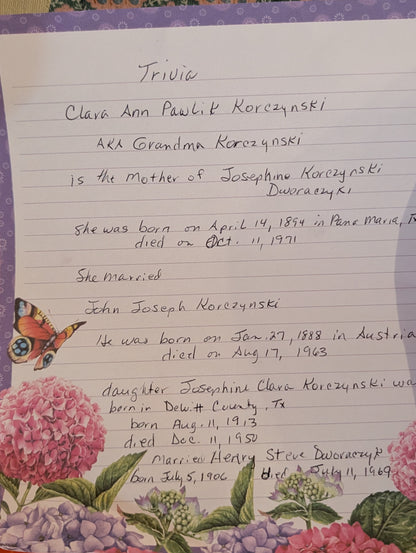 Trivia
Clara Ann Pawlik Korczynski
AKA Grandma Korczynski
is the Mother of Josephine Korczynski
Dworaczyk
She was born on April 14, 1894 in Pana Maria, Tx
died on Oct. 11, 1971
She married
John Joseph Korczynski
He was born on Jan. 27, 1888 in Austria
died on Aug 17, 1963
daughter Josephine Clara Korczynski wa
born in Dewitt County, Tx
born Aug. 11, 1913
died Dec. 11, 1950
Married Henry Steve Dworaczyk
born July 5, 1906 died July 11, 1969